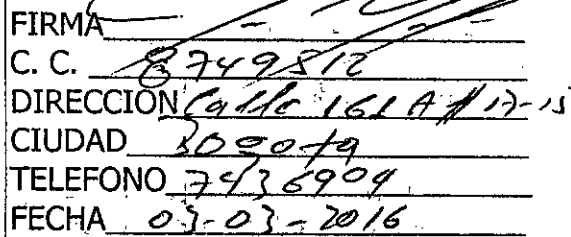 FIRMA
C. C. 8749512
DIRECCIÓN Calle 161 A # 17-15
CIUDAD Bogota
TELEFONO 7436904
FECHA 03-03-2016